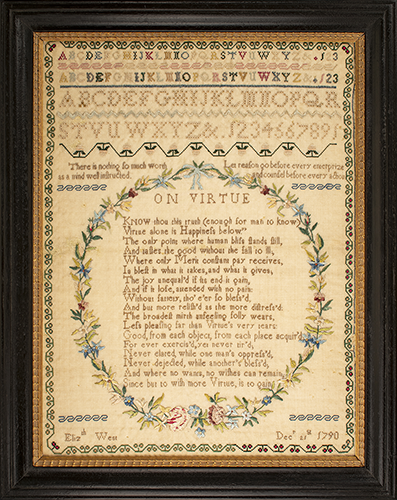 ABCDEFGHIJKLMNOPQRSTUVWXYZ&1123
ABCDEFGHIJKLMNOPQRSTUVWXYZ&123
ABCDEFGHIJKLMNOPQR
STUVWXYZ& 1234667891
There is nothing so much worth
as a mind well instructed.
Let reason go before every enterprize
and counsel before every action
ON VIRTUE
KNOW thou this truth (enough for man to know)
Virtue alone is Happiness below."
The only point where human bliss stands still,
And tastes the good without the fall to ill,
Where only Merit constant pay receives,
Is blest in what it takes, and what it gives,
The joy unequal'd if its end it gain,
And if it lose, attended with no pain:
Without satiety, tho' e'er so bless'd,
And but more relish'd as the more distress'd:
The broadest mirth unfeeling folly wears,
Less pleasing far than Virtue's very tears:
Good, from each object, from each place acquir'd
For ever exercis'd, yet never tir'd;
Never elated, while one man's oppress'd,
Never dejected, while another's bless'd,
And where no wants, no wishes can remain,
Since but to wish more Virtue, is to gain
Eliz.th West
Dec.r 21.st 1790